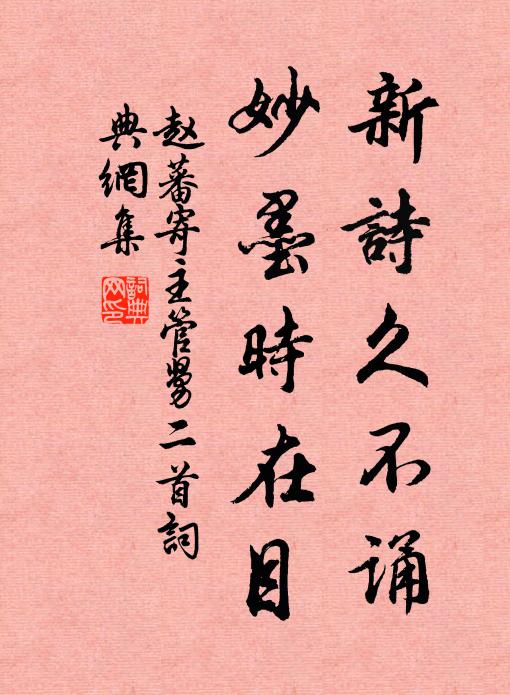 新詩久不誦
妙墨時在目
赵蕃寄主管舅二首詞
典網集
詞典
网印